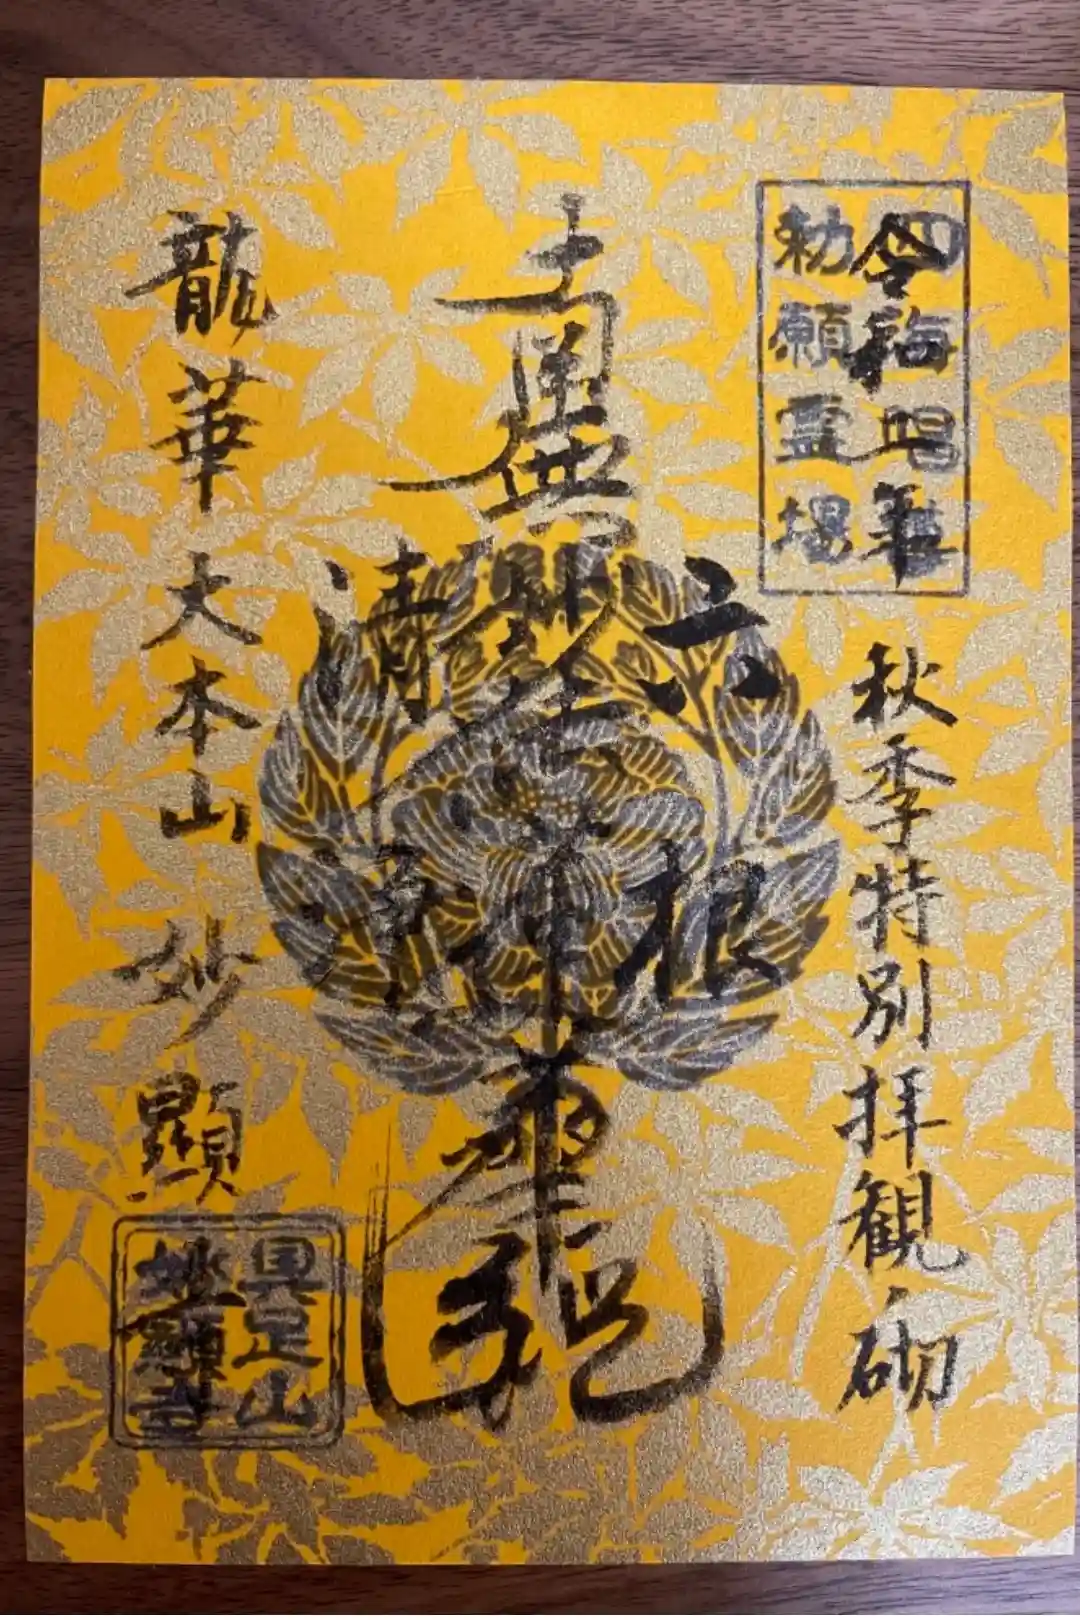 四海唱導
勅願霊場
令和
年
秋季特別拝観ノ砌
六根
南無妙法蓮華経
清浄
龍華 大本山 妙顯
具足山
妙顯寺